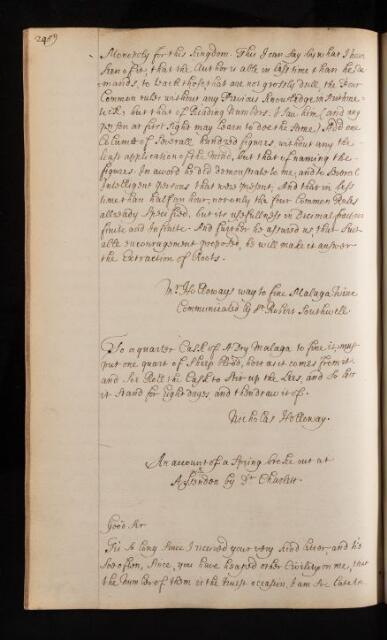 Monopoly for this Kingdom. This I can say by what I have
seen of it, that the Author is able in less time than he De
mands, to teach those that are not grossly dull, the Four
Common rules without any Previous Knowledge in Arithme
tick, but that of Reading Numbers. I saw him (and any
person at first sight may learn to doe the same) Add one
Columne of Severall hundred figures, without any the
least application of the mind, but that of naming the
figures. In a word he did demonstrate to me, and to Several
Intelligent persons that were present, And that in less
time than half an hour, not only the four Common Rules
allready Specified, but its usefullness in Decimal fractions
finite and Infinite. And further he assured us, that suit
able encouragement proposed, he will make it answer
the Extraction of Roots.
Mr. Holloways way to fine Malaga Wine
Communicated by Sr. Robert Southwell
To a quarter Cask of Dry Malaga to fine it, must
put one quart of Sheep Blood, here as it comes from it
and so Roll the Cask to Stir up the Lees, and So let
it Stand for Eight dayes, and then draw it of.
Nicholas Holloway.
An account of a Spring broke out at
by Dr. Charlett.
Good Sr
Tis So long Since I received your very kind letter, and tis
Since, you have heaped other Civilitys on me, that
the Number of them is the truest occasion, I am so late in